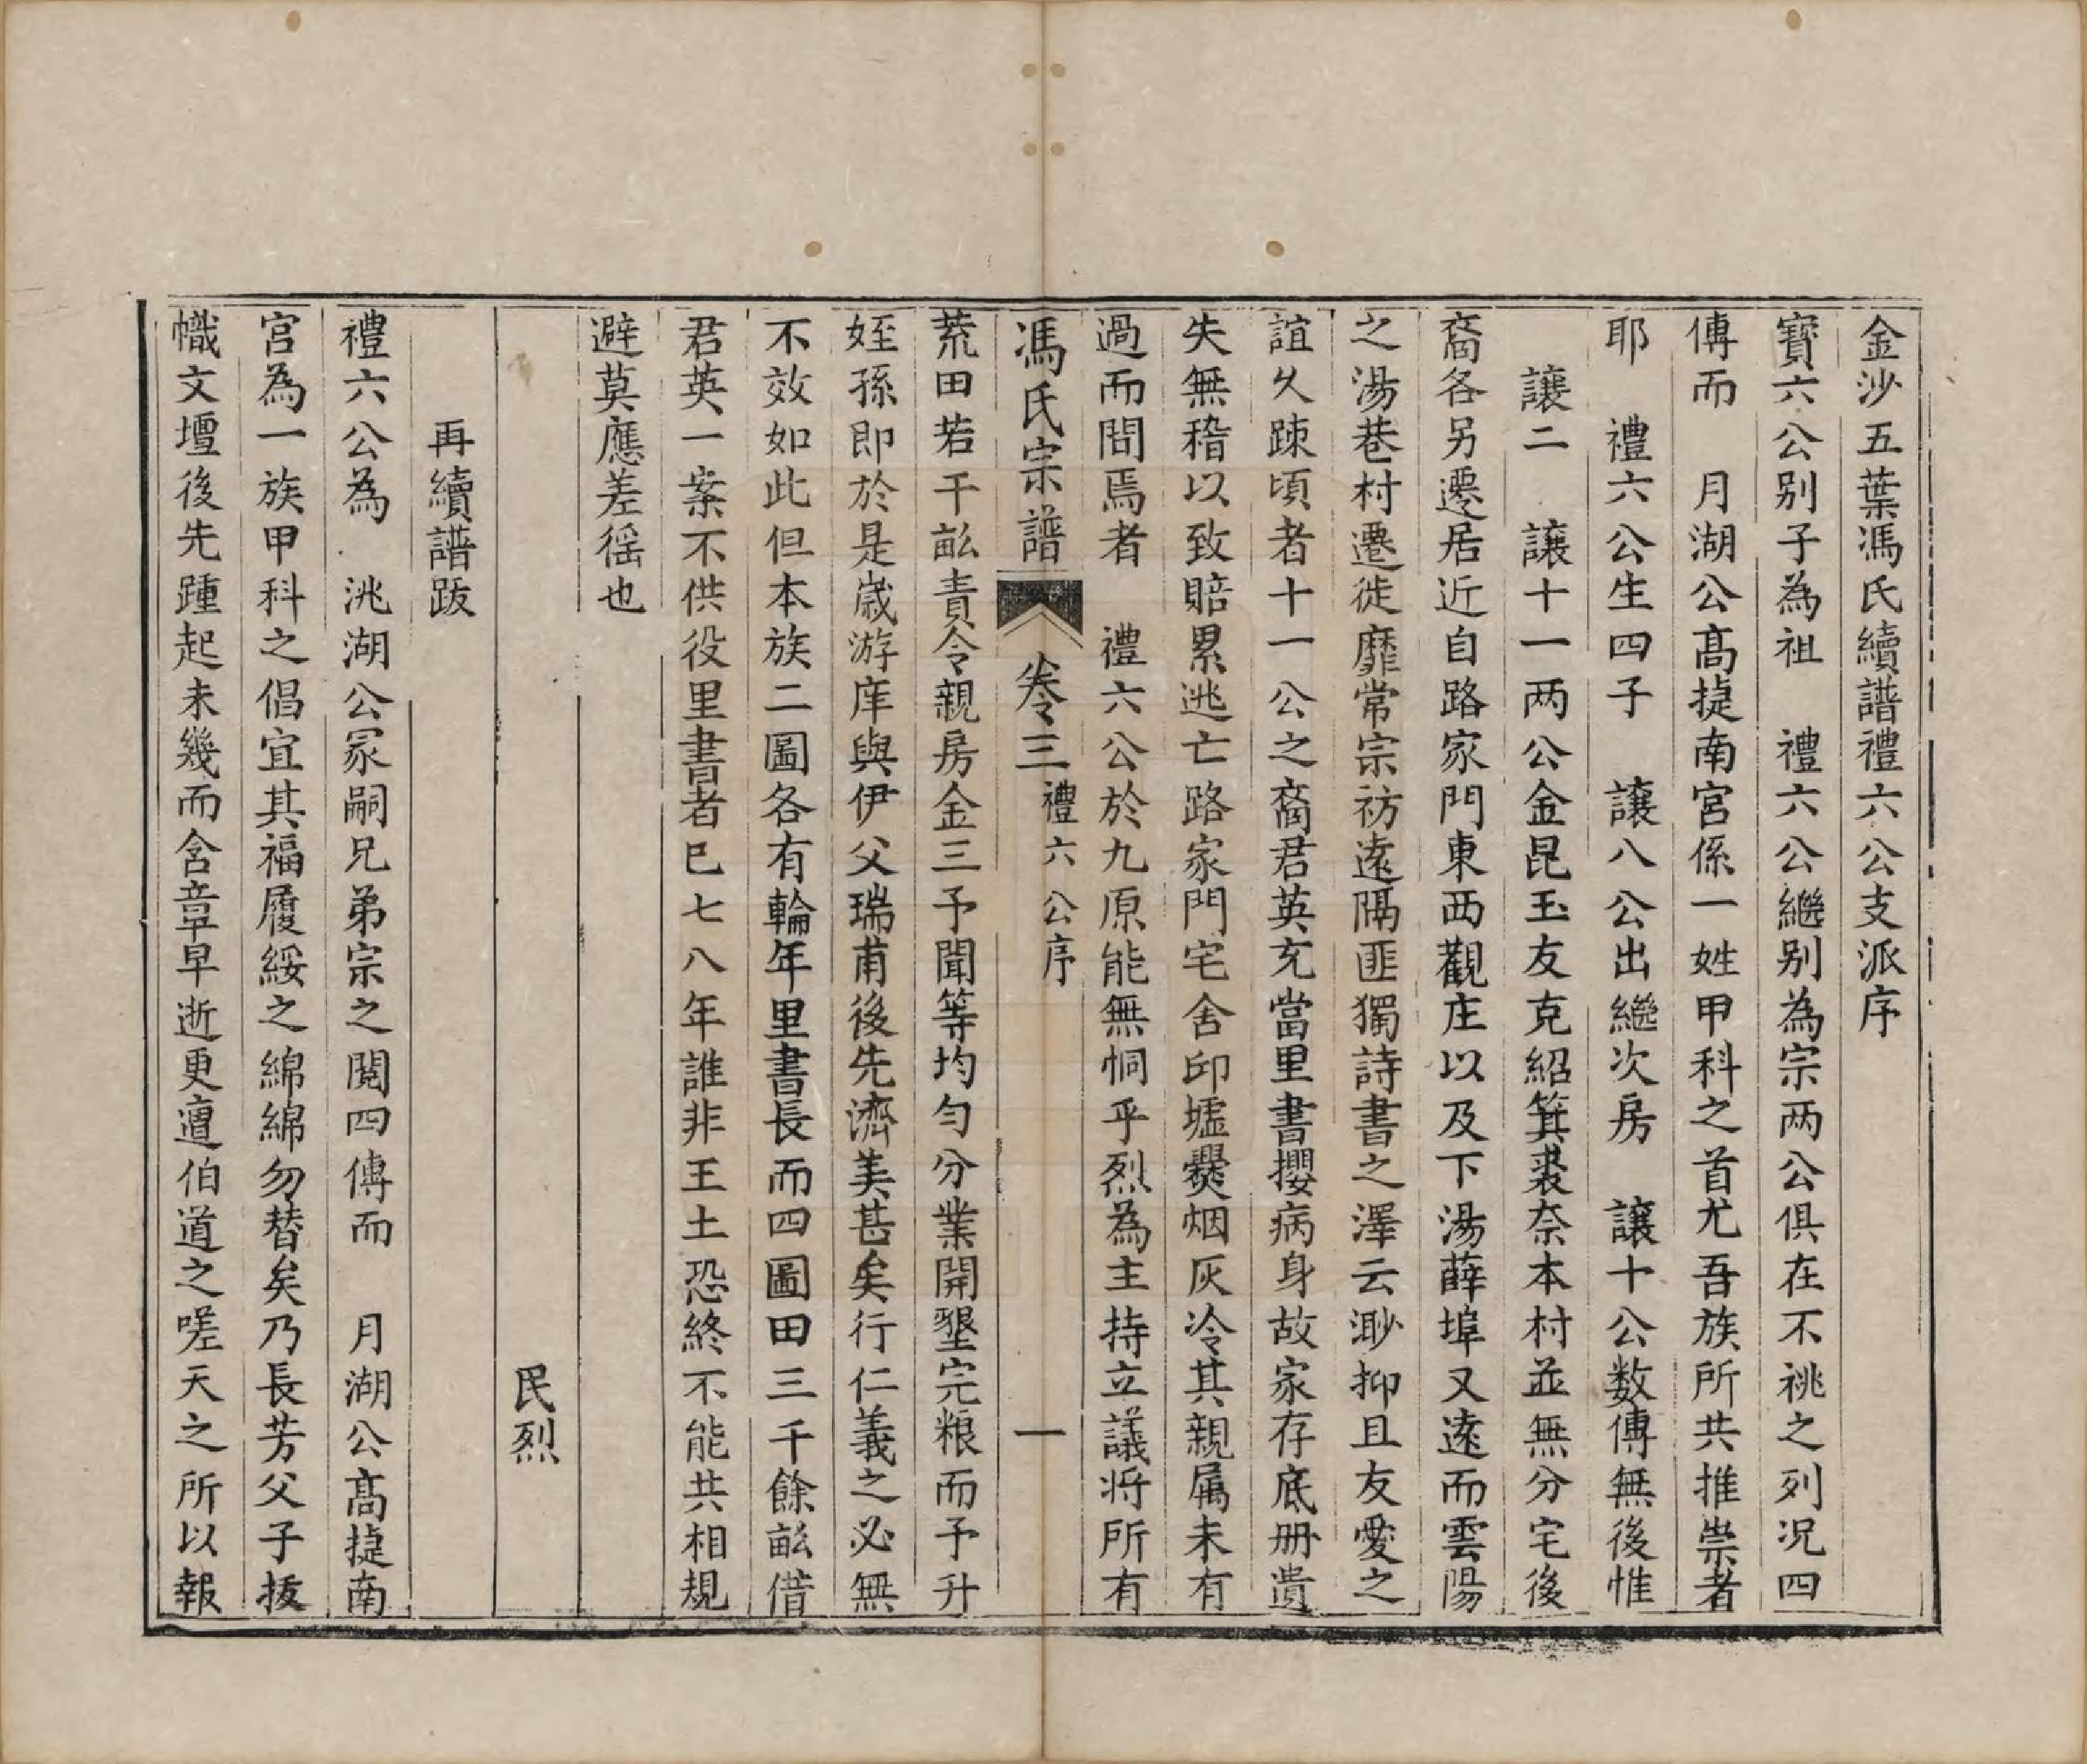 金沙五葉馮氏續譜禮六公支派序
寶六公别子為祖　禮六公繼别為宗两公俱在不祧之列况四
傳而　月湖公髙捷南宮係一姓甲科之首尤吾族所共推崇者
耶　禮六公生四子　讓八公出繼次房　讓十公数傳無後惟
讓二　讓十一两公金昆玉友克紹箕裘奈本村並無分宅後
裔各另遷居近自路家門東西觀庄以及下湯薛埠又遠而雲陽
之湯巷村遷徙靡常宗祊遠隔匪獨詩書之澤云渺抑且友愛之
誼乆踈頃者十一公之裔君英充當里書攖病身故家存底册遺
失無稽以致賠累逃亡路家門宅舍邱墟爨烟灰冷其親属未有
過而問焉者　禮六公於九原能無恫乎烈為主持立議将所有
馮氏宗譜　卷三　禮六公序　一
荒田若干畝責令親房金三予聞等均勻分業開墾完粮而予升
姪孫即於是歲游庠與伊父瑞甫後先濟美甚矣行仁義之必無
不效如此但本族二圖各有輪年里書長而四圖田三千餘畝借
君英一案不供役里書者巳七八年誰非王土恐終不能共相規
避莫應差徭也
民烈
再續譜跋
禮六公為　洮湖公冢嗣兄弟宗之閱四傳而　月湖公髙捷南
宮為一族甲科之倡宜其福履綏之綿綿勿替矣乃長芳父子拔
幟文壇後先踵起未幾而含章早逝更遭伯道之嗟天之所以報